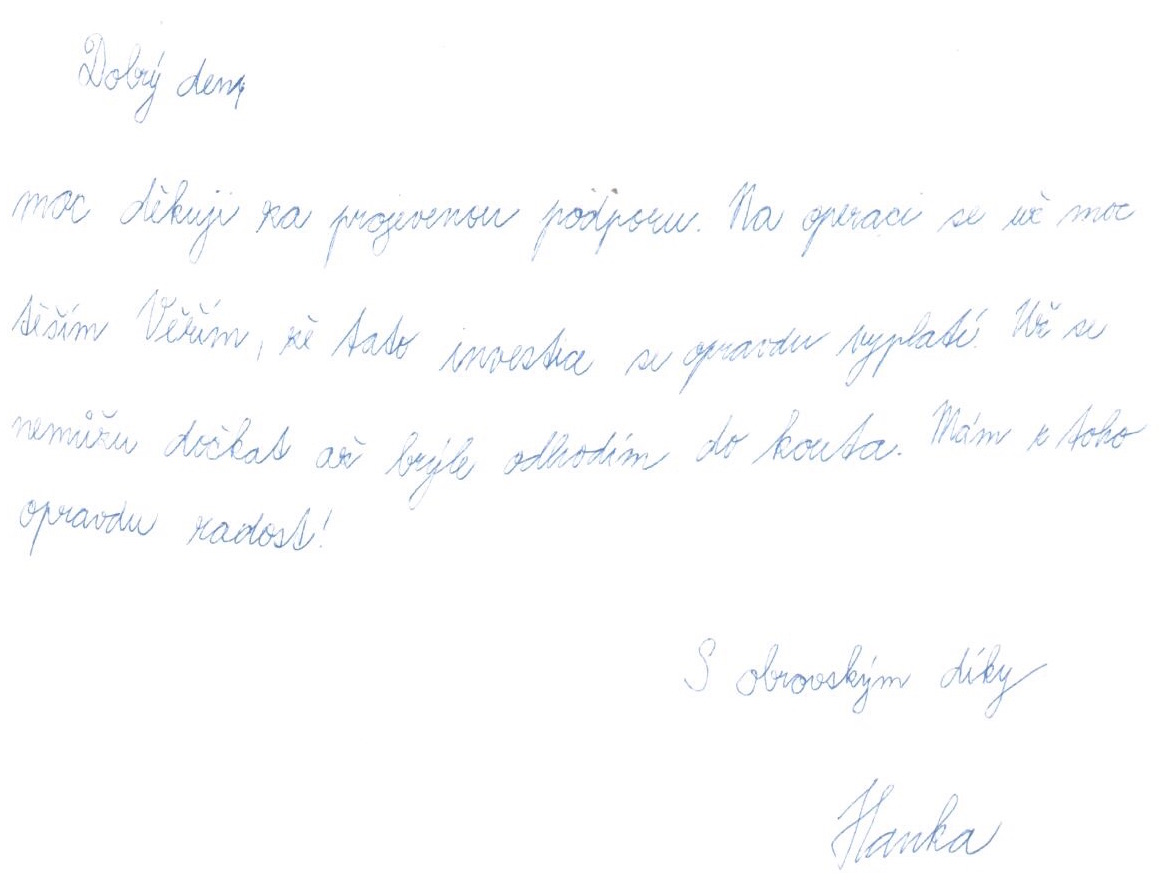 Dobrý den,
moc děkuji za projevenou podporu. Na operaci se už moc
těším Věřím, že tato investice se opravdu vyplatí. Už se
nemůžu dočkat až brýle odhodím do kouta. Mám z toho
opravdu radost!
S obrovským díky
Hanka